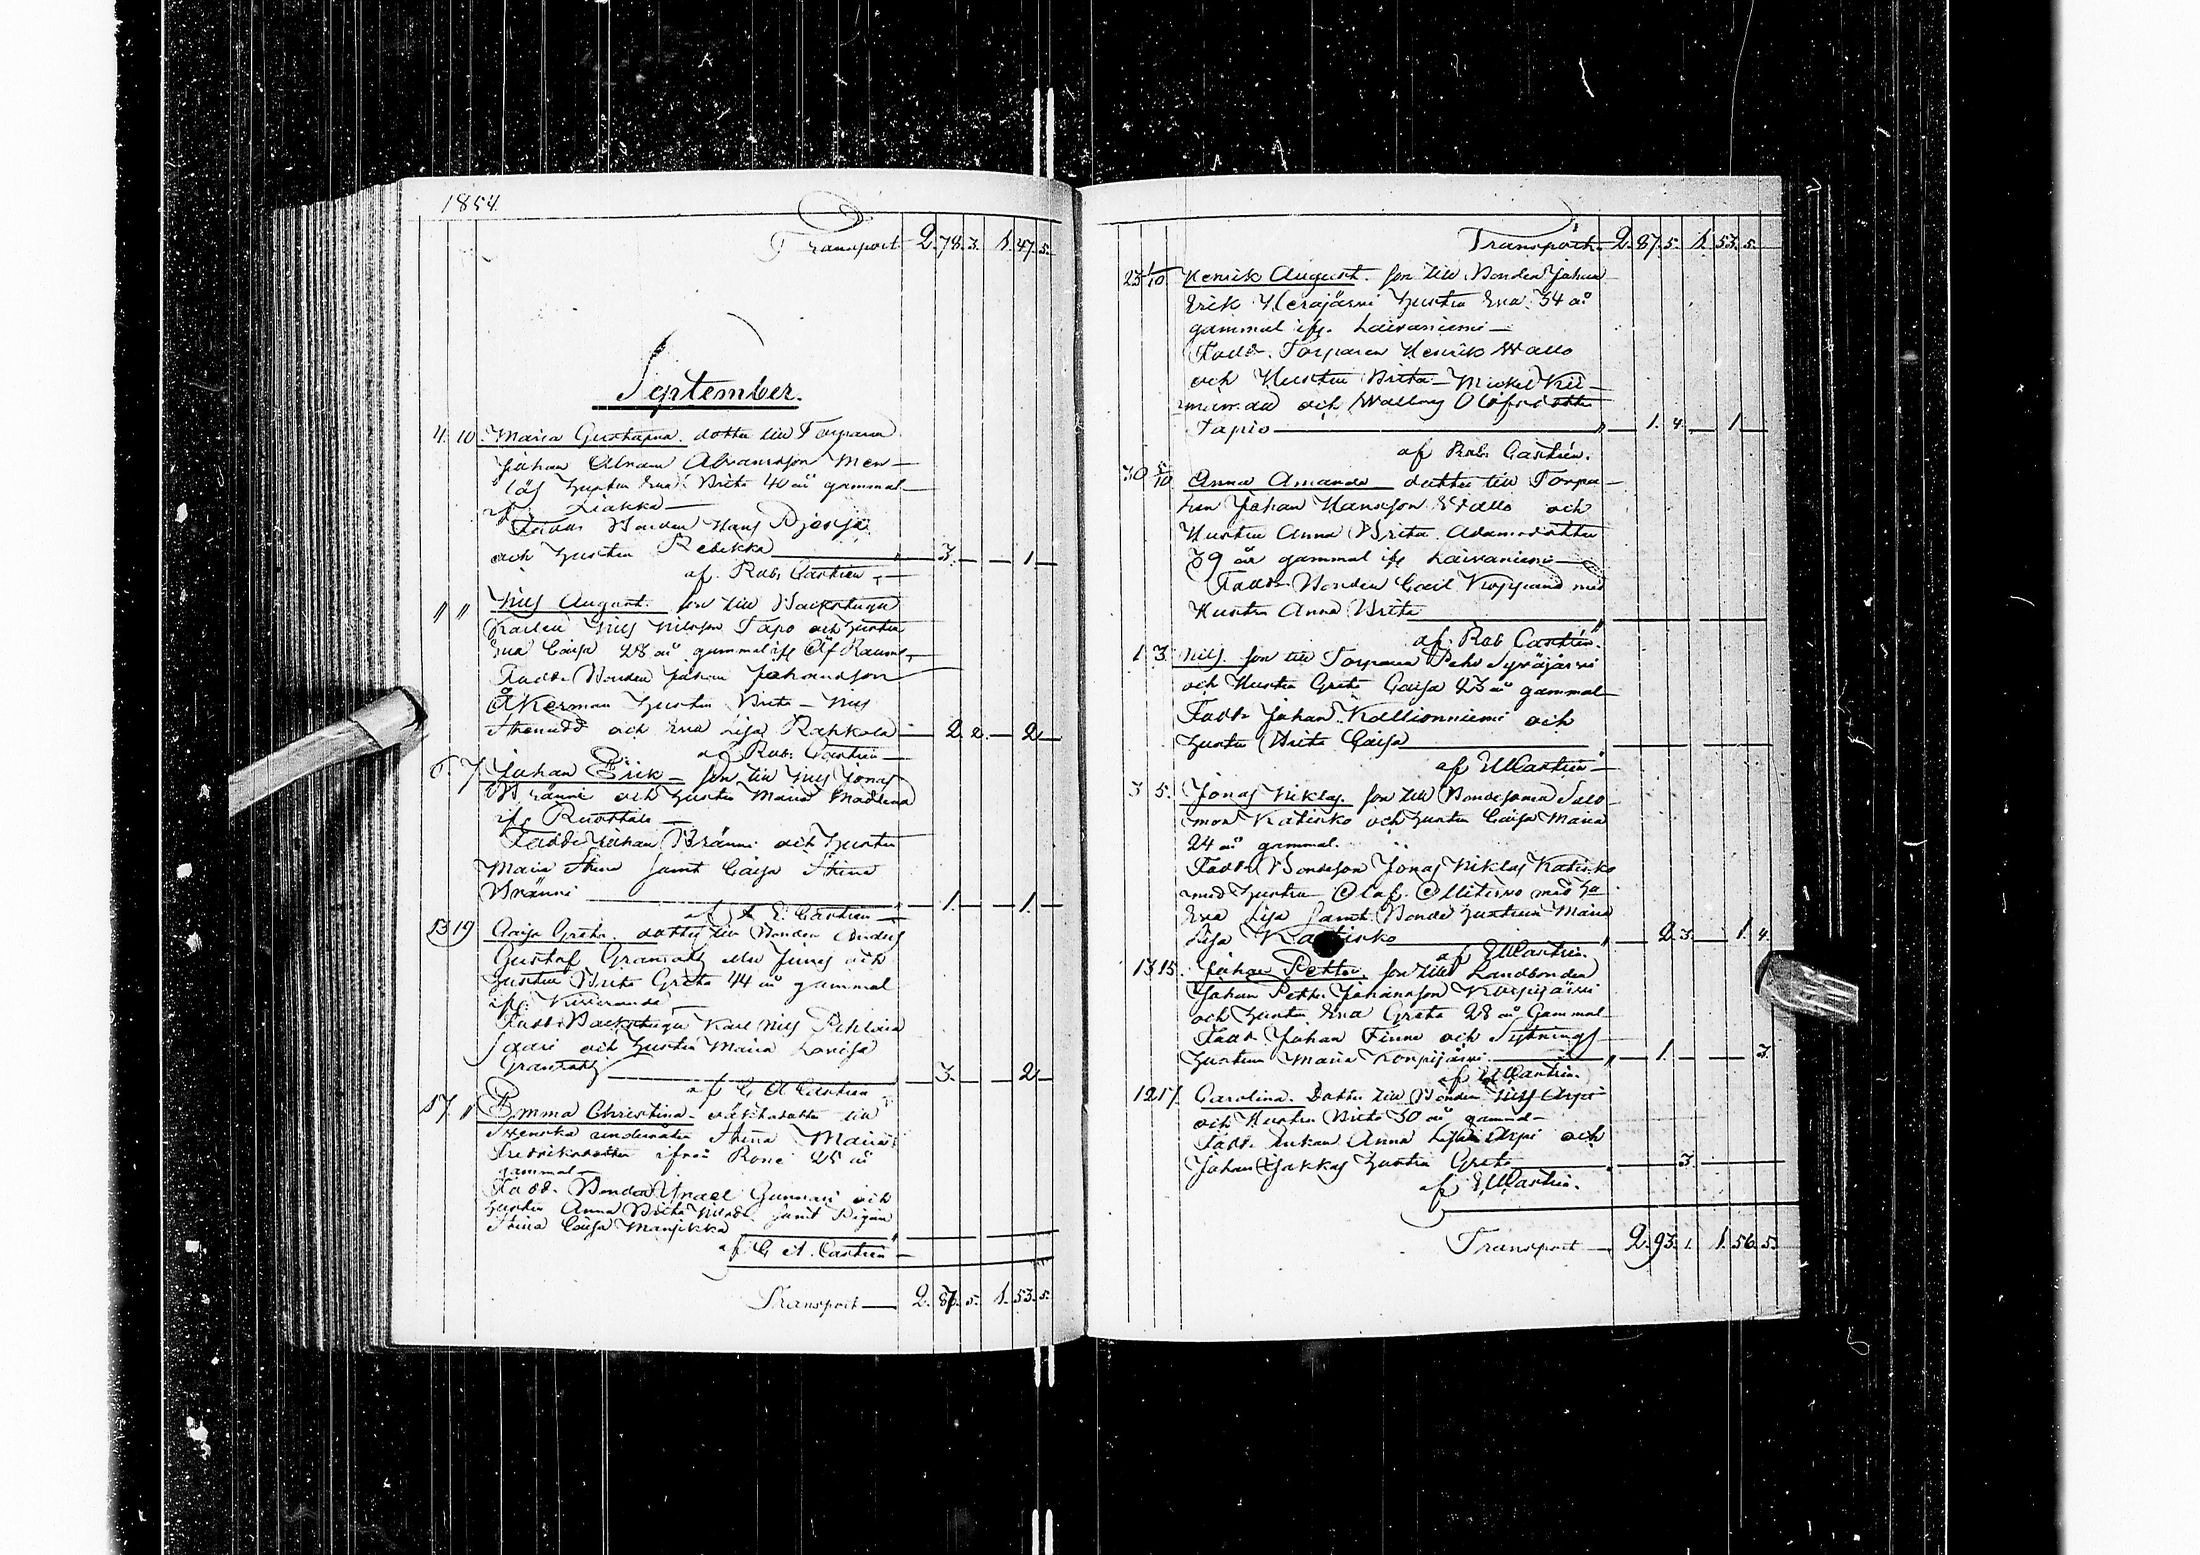 1854.
Transport 2. 78. 3. 1. 47. 5.
September.
4. 10. Maria Gustafva. dotter till Torparen
Johan Abram Abramsson Men-
lös hustru Eva Brita 40 år gammal
ifr. Liakka
Fadd. Bonden Hans
och hustru Rebekka " 3. 1
af Rob. Castrén
" " Nils August. son till Backstugu
Karlen Nils Nilsson Tapo och hustru
Eva Caisa 28 år gammal ifr. Öf Raumo
Fadd. Bonden Johan Johansson
Åkerman hustru Brita - Nils
och Eva Lisa Rahkola 2. 2. 2
af Rob. Castrén
6. 7. Johan Erik - son till Nils Jonas
Bränni och hustru Maria Madlena
ifr. Ruottala
Fadd. Johan Bränni och hustru
Maria Stina samt Caisa Stina
Bränni " 1. 1.
af A E Castrén
13 19 Caisa Greta. dotter till Bonden Anders
Gustaf Granroth
hustru Brita Greta 44 år gammal
ifr.
Fadd. Backstugu Karl Nils
saari och hustru Maria Lovisa
Granroth 3. 2
af G A Castrén
17. " Emma Christina. till
Svenska undersåten Stina Maria
Fredriksdotter ifrån Rone 25 år
gammal
Fadd. Bonden Israel Gunnari och
hustru Anna Brita samt Pigan
Stina Caisa Manjikka "
af G A. Castrén
Transport 2. 87. 5. 1. 53. 5.
Transport. 2. 87. 5. 1. 53. 5.
23 1/10 Henrik August. son till Bonden Johan
Erik Herajärvi hustru Eva 34 år
gammal ifr. Laivaniemi
Fadd. Torparen Henrik Wallo
och Hustru Brita - Mickel Kii-
och Walborg Olofsdotter
Tapio " 1. 4. 1
af Rob. Castrén.
30 5/10 Anna Amanda dotter till Torpa-
ren Johan Hansson Wallo och
Hustru Anna Brita Adamsdotter
39 år gammal ifr. Laivaniemi
Fadd. Bonden Carl med
Hustru Anna Brita "
af Rob Castrén
1. 3. Nils. son till Torparen Pehr Syväjärvi
och Hustru Greta Caisa 23 år gammal
Fadd. Johan Kallionniemi och
hustru Brita Caisa "
af E W Castrén
3 5. Jonas Niklas. son till Bondesonen Salo-
mon Katisko och hustru Caisa Maria
24 år gammal.
Fadd. Bondeson Jonas Niklas Katisko
med hustru Olof med hu
Eva Lisa samt Bonde hustrun Maria
Lisa Katisko " 2. 3. 1. 4.
af E W Castrén.
13 15. Johan Petter. son till Landbonden
Johan Petter Johansson Korpijärvi
och hustru Eva Greta 28 år gammal
Fadd. Johan Finne och Sytnings
hustrun Maria Korpijärvi " 1. 3.
af E W Castrén.
12 17. Carolina. Dotter till Bonden Nils Arpi
och Hustru Brita 30 år gammal
Fadd. Enkan Anna Lisa Arpi och
Johan Jakkas hustru Greta 3.
af E W Castrén.
Transport 2. 93. 1. 1. 56. 5.